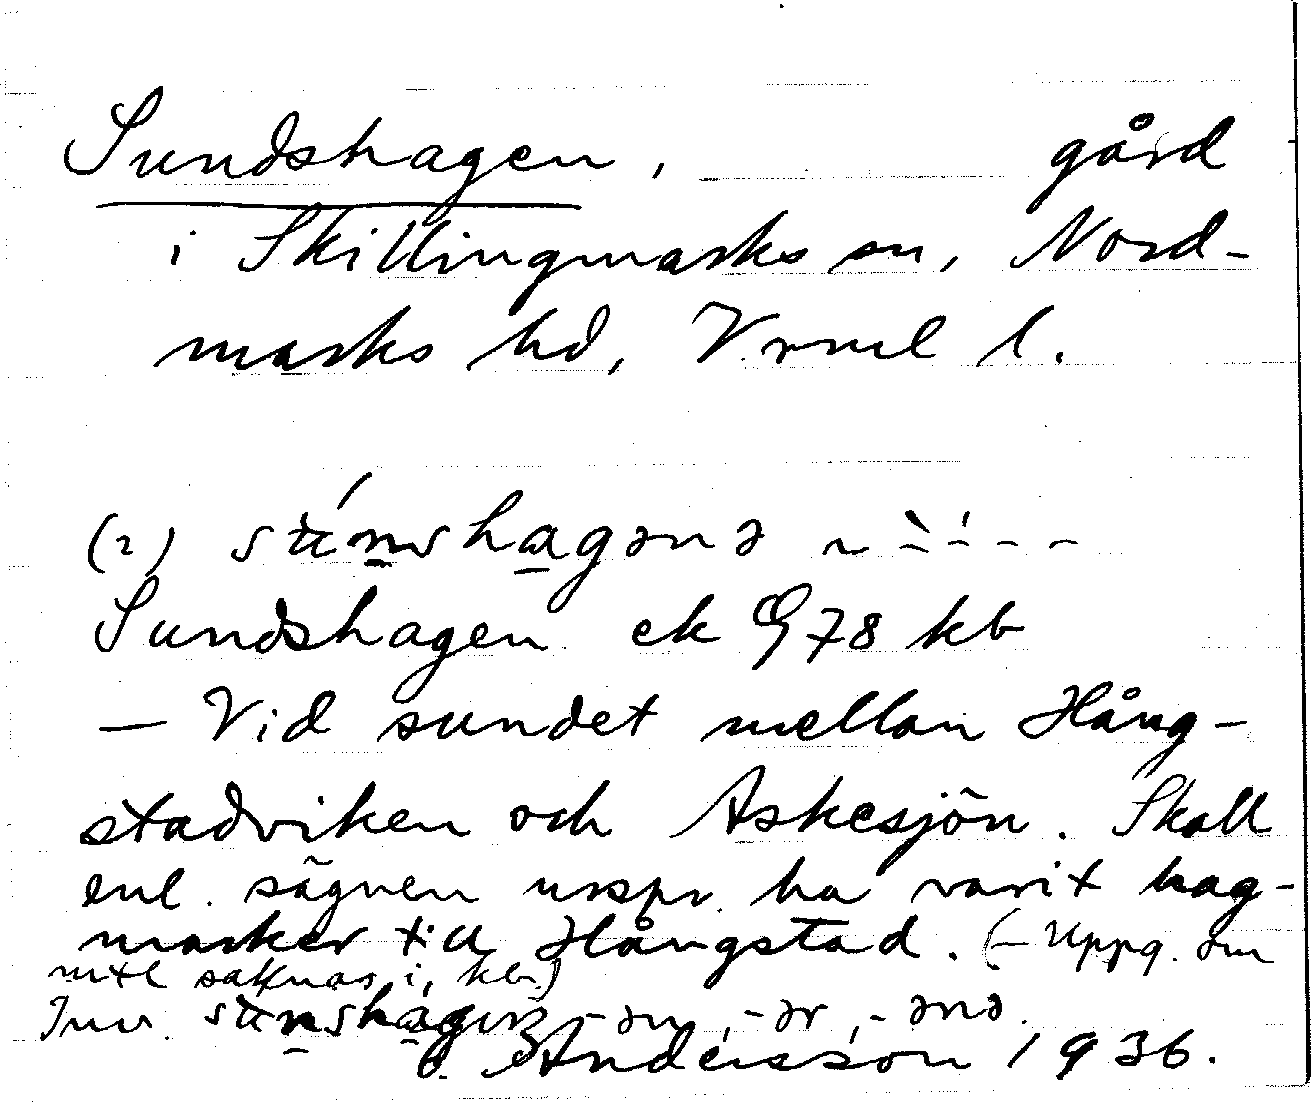 Sundshagen, gård
i Skillingmarks sn, Nord-
marks hd, Vrml l.
(2) sún̲shagənə ~ `- ´- - -
Sundshagen ek G 78 kb
— Vid sundet mellan Hång-
stadviken och Askesjön. Skall
enl. sägnen urspr. ha varit hag-
marker till Hångstad. (– Uppg. om
mtl saknas i kb.)
Inv. -ən, -ər, -ənə.
Andersson 1936.